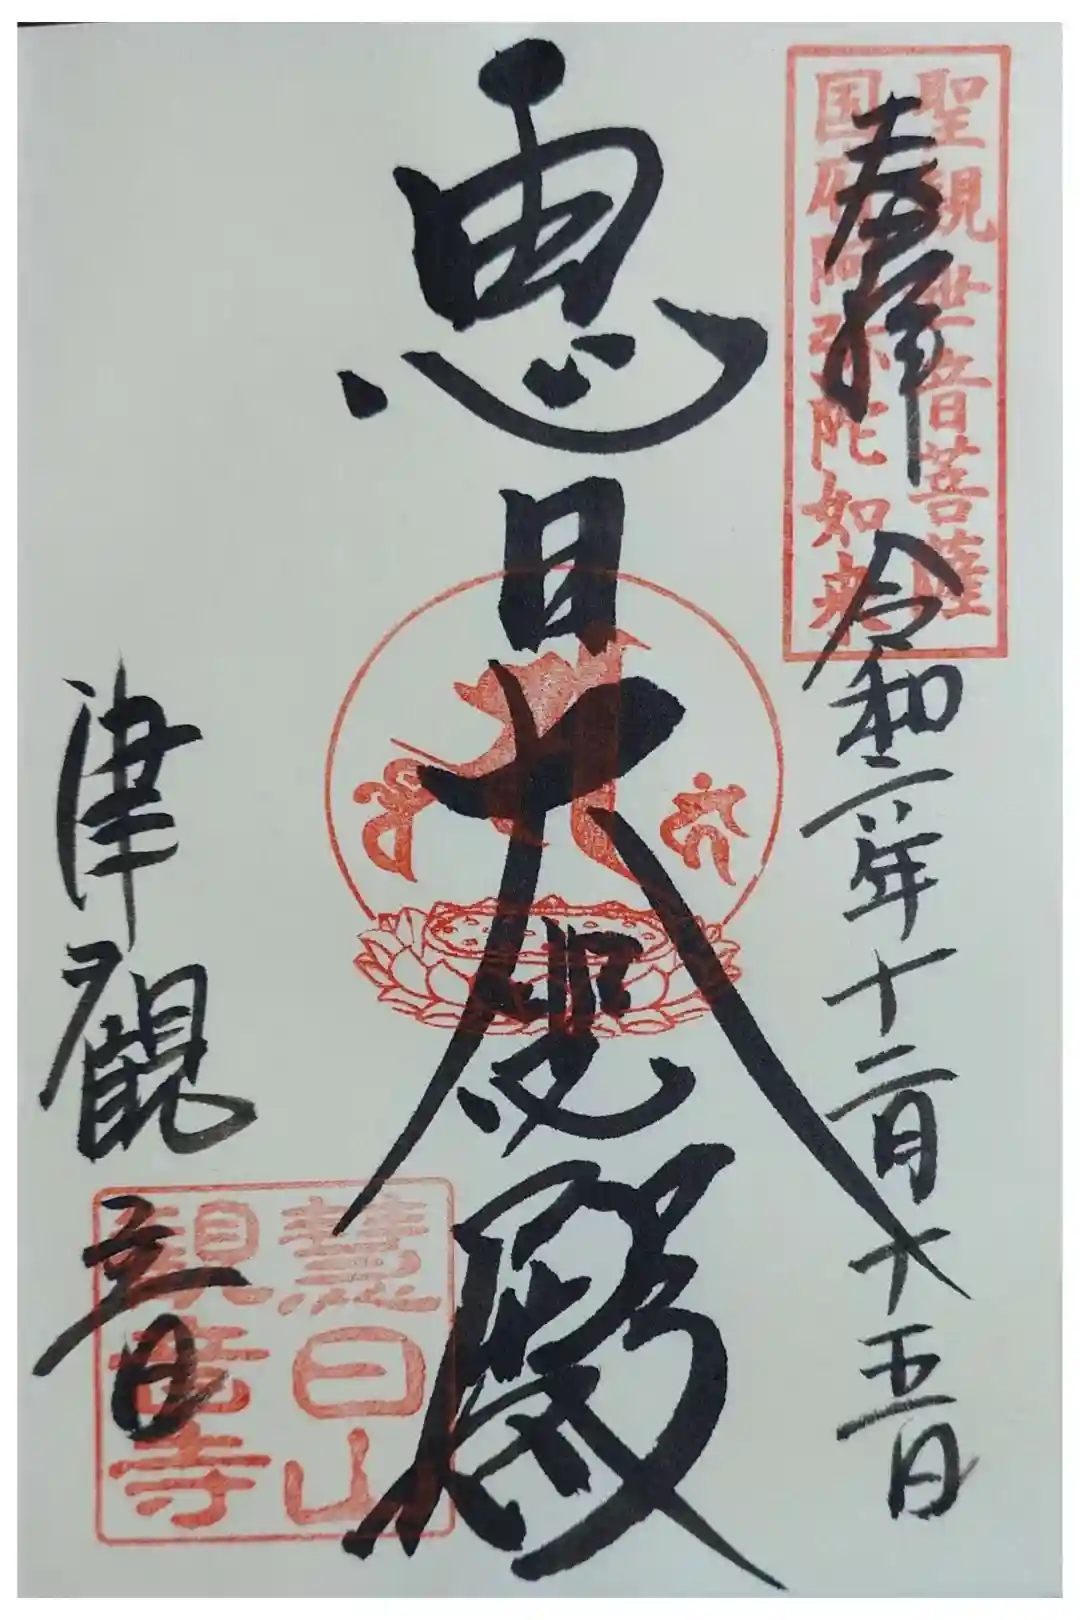 奉拝
令和二年十二月十五日
聖観世音菩薩
国府阿弥陀如来
恵日大悲殿
津観音
慧日山
観音寺